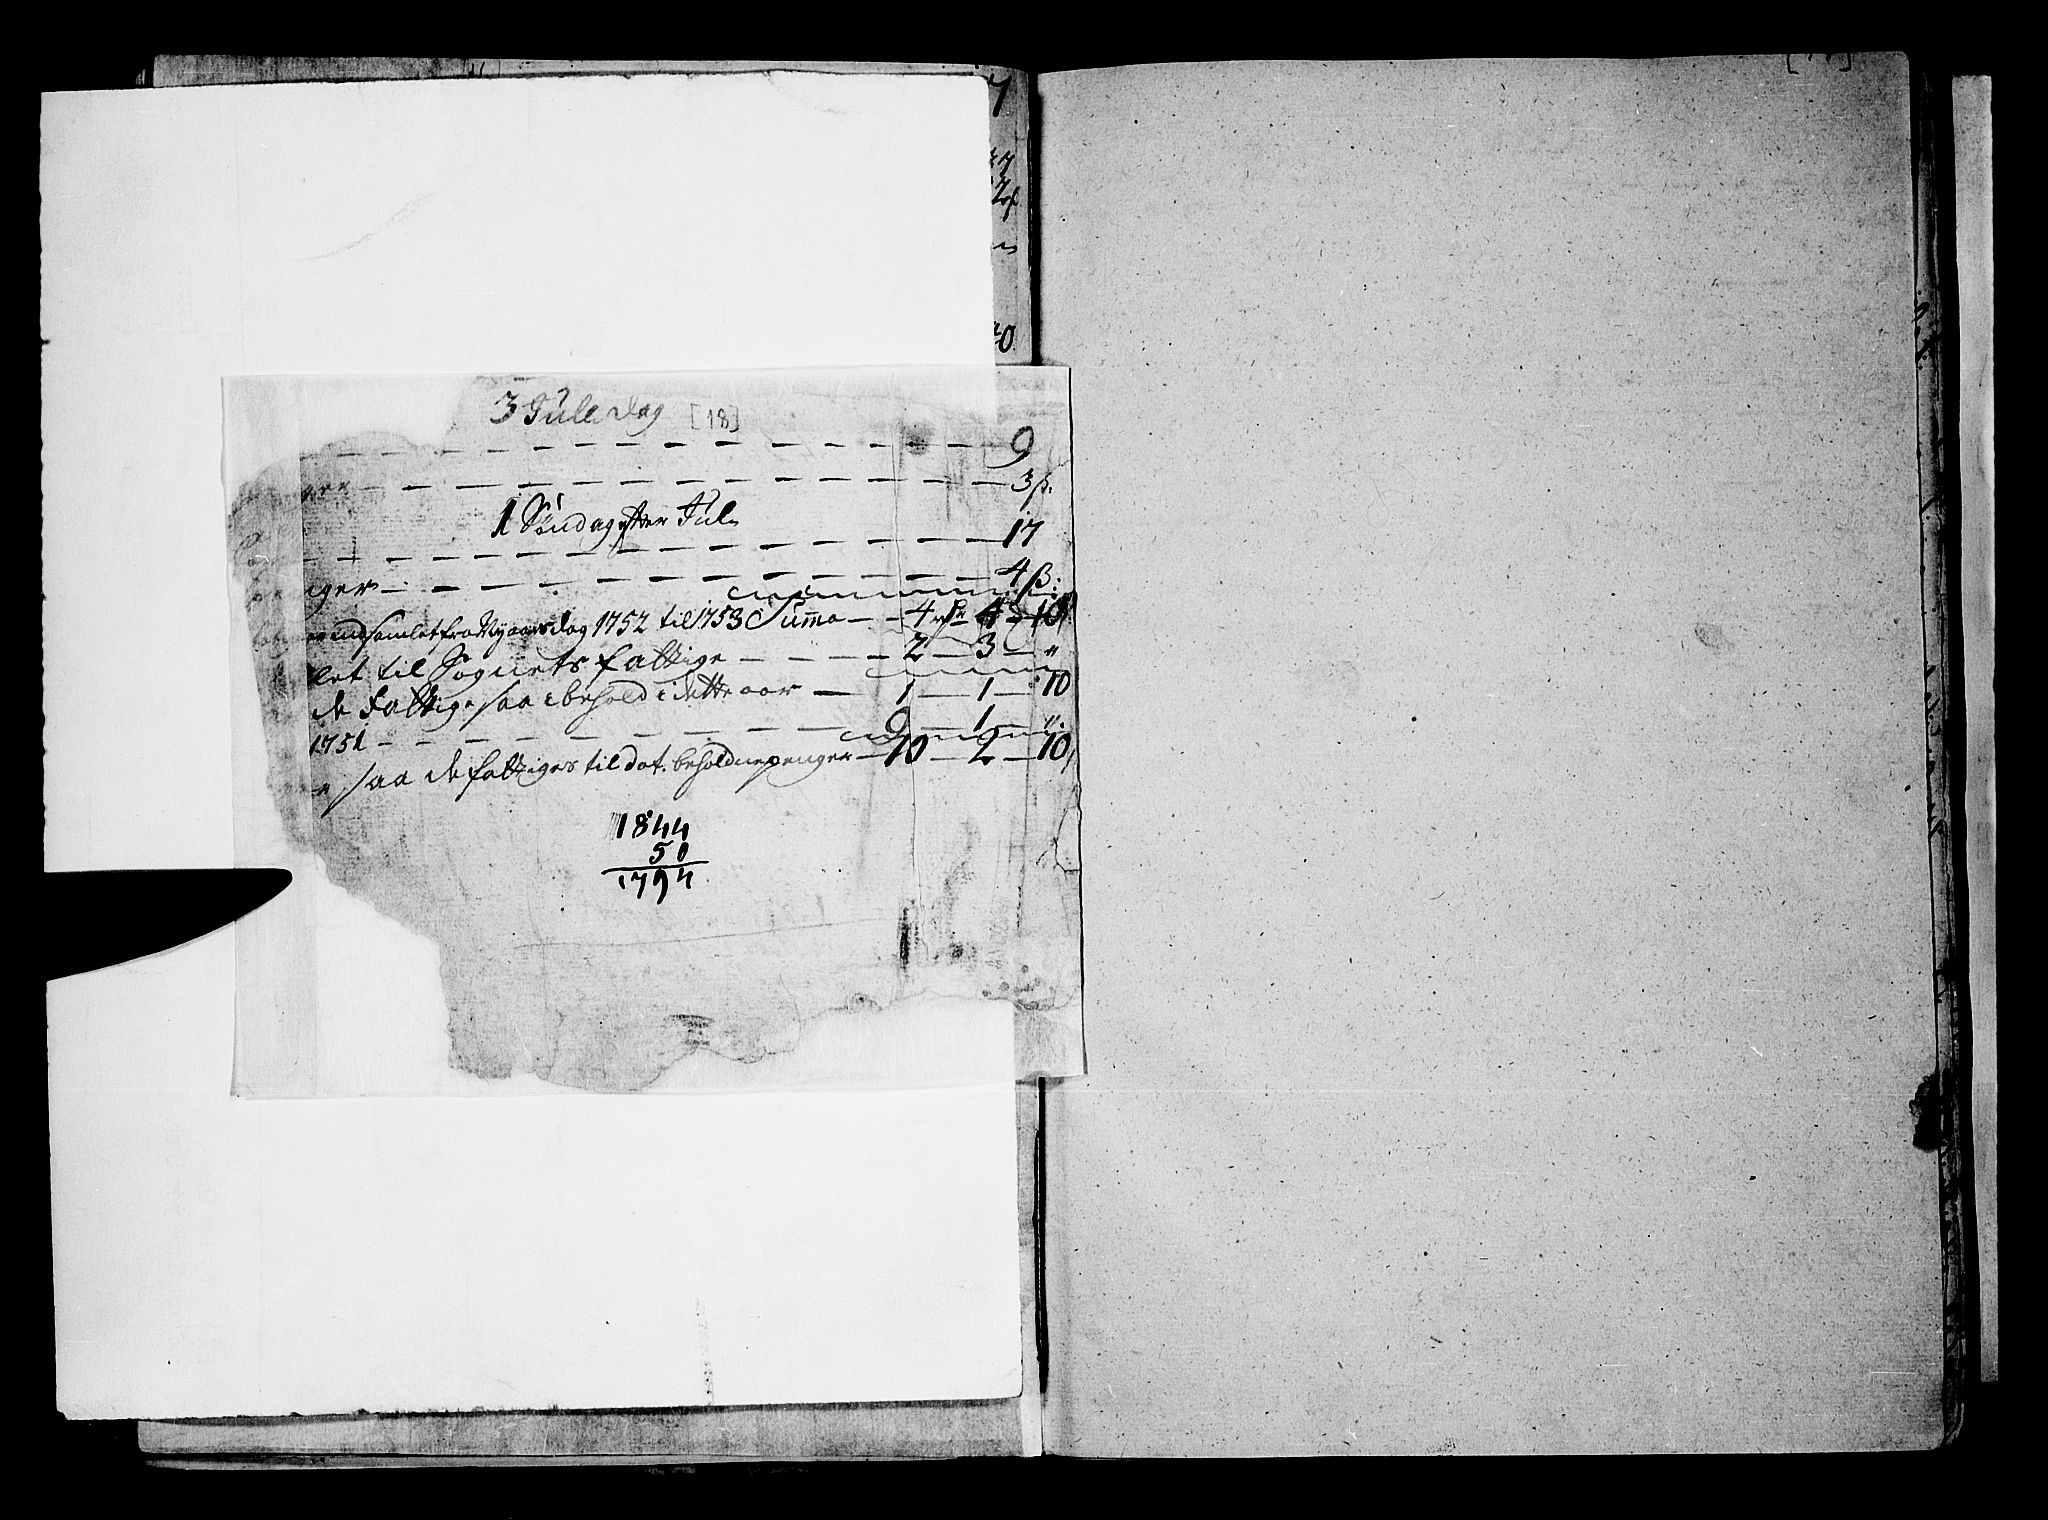 3 Jule dag [18]
— — — — — — — — — 9
— — — — — — — — — 3 ß.
1 Søndag efter Jul
— — — — — — — — — 17
nger — — — — — — — — — 4 ß:
indsamlet fra Nyaarsdag 1752 til 1753 Summa — — 4 — 4 — 10
let til Sognets fattige — — — — 2 — 3 — "
de Fattige saa i behold i dette aar — 1 — 1 — 10
1751 — — — — — — — — 9 — 1 — "
saa de fattiges til dat. beholdne penger — 10 — 2 — 10
1844
50
1794